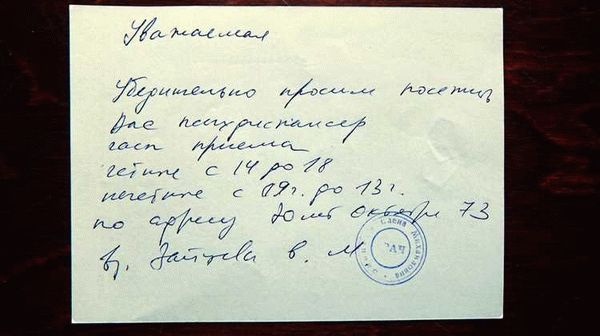 Уважаемая
Убедительно просим посетить
Вас психдиспансер
часы приема
четные с 14 до 18
нечетные с 09ч. до 13ч.
по адресу 30 лет Октября 73
вр. Зайцева В. М
Елена Михайловна
ВРАЧ